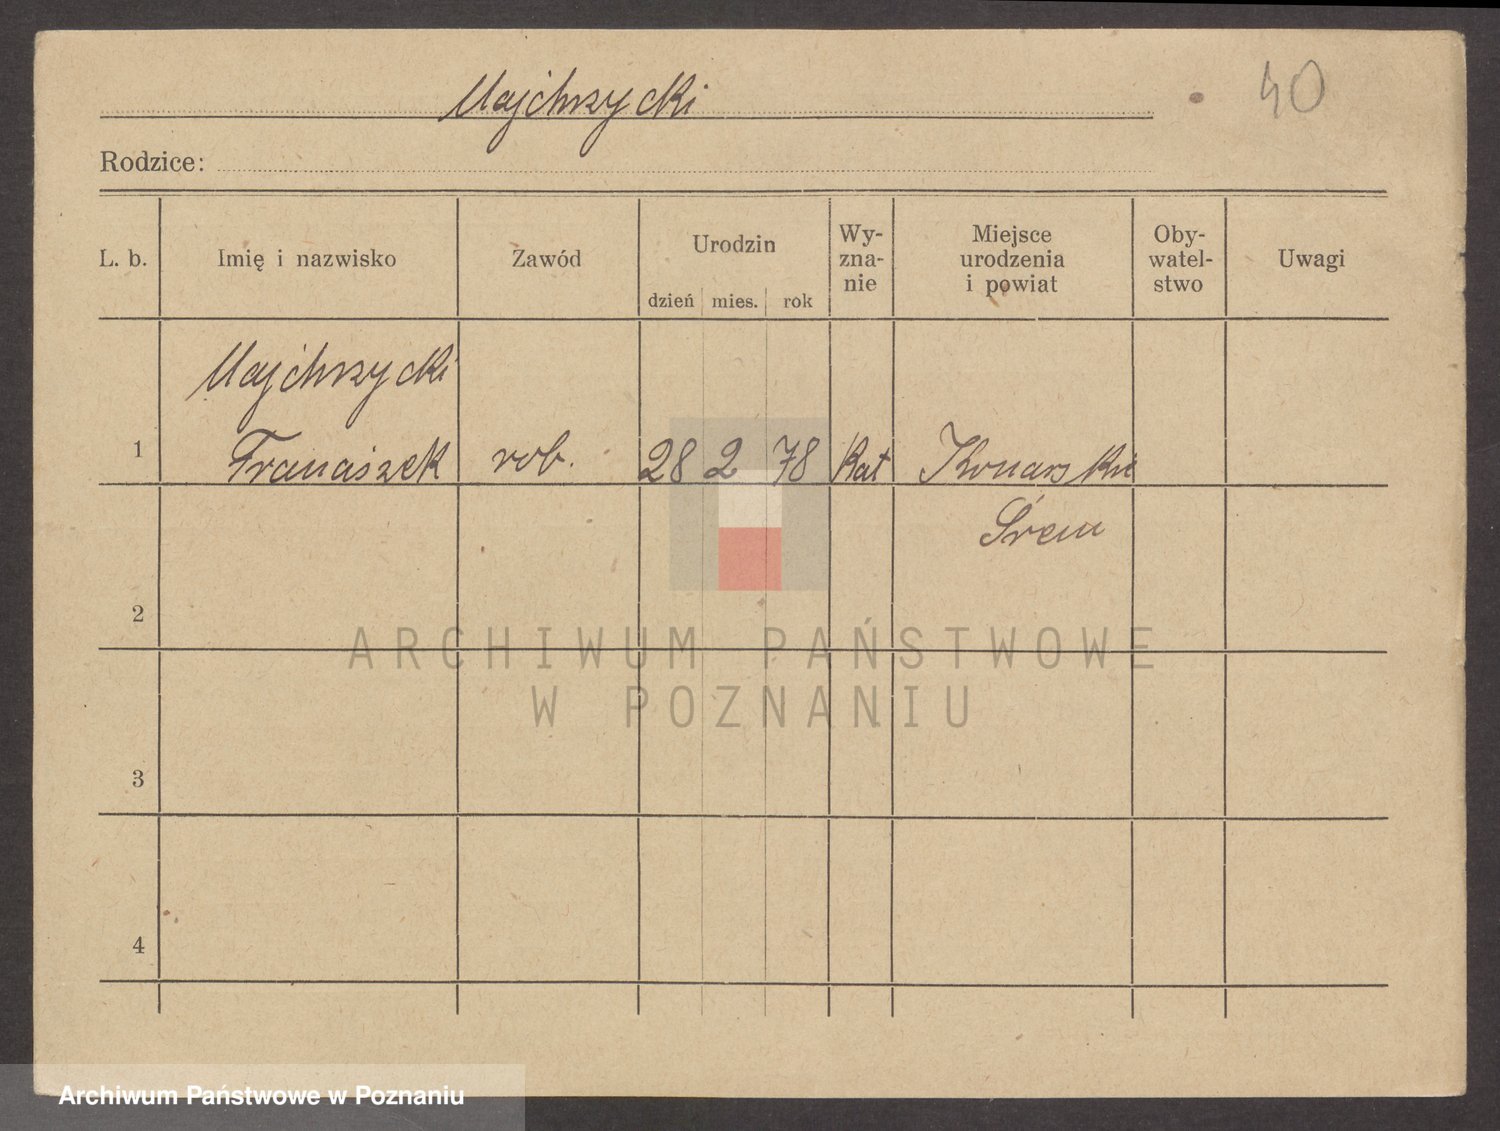 Majchrzycki
40
Rodzice:
L. b. Imię i nazwisko Zawód Urodzin dzień mies. rok Wy-zna-nie Miejsce urodzenia i powiat Oby-watel-stwo Uwagi
Majchrzycki
1 Franciszek rob. 28 2 78 kat Konarskie
Śrem
2
ARCHIWUM PAŃSTWOWE
W POZNANIU
3
4
Archiwum Państwowe w Poznaniu